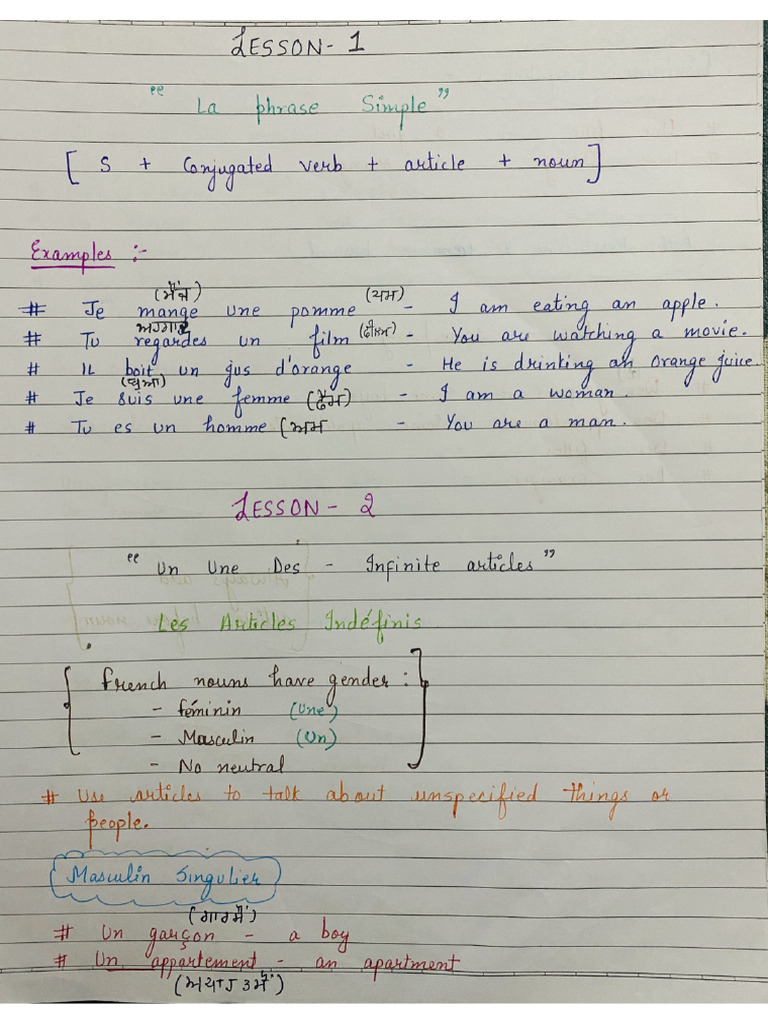 LESSON - 1
" La phrase Simple "
[ S + Conjugated verb + article + noun ]
Examples :-
(ਮੌਂਜ) (ਪਮ)
# Je mange une pomme - I am eating an apple.
# Tu regardes un film (ਫੀਲਮ) - You are watching a movie.
# IL boit un jus d'orange - He is drinking an orange juice
# Je suis une femme (ਫੈਮ) - I am a woman.
# Tu es un homme (ਅਮ - You are a man.
LESSON - 2
" Un Une Des - Infinite articles "
Les Articles Indéfinis
French nouns have gender :
- féminin (Une)
- Masculin (Un)
- No neutral
# Use articles to talk about unspecified things or
people.
Masculin Singulier
(ਗਾਰਸੈਂ)
# Un garçon - a boy
# Un appartement - an apartment